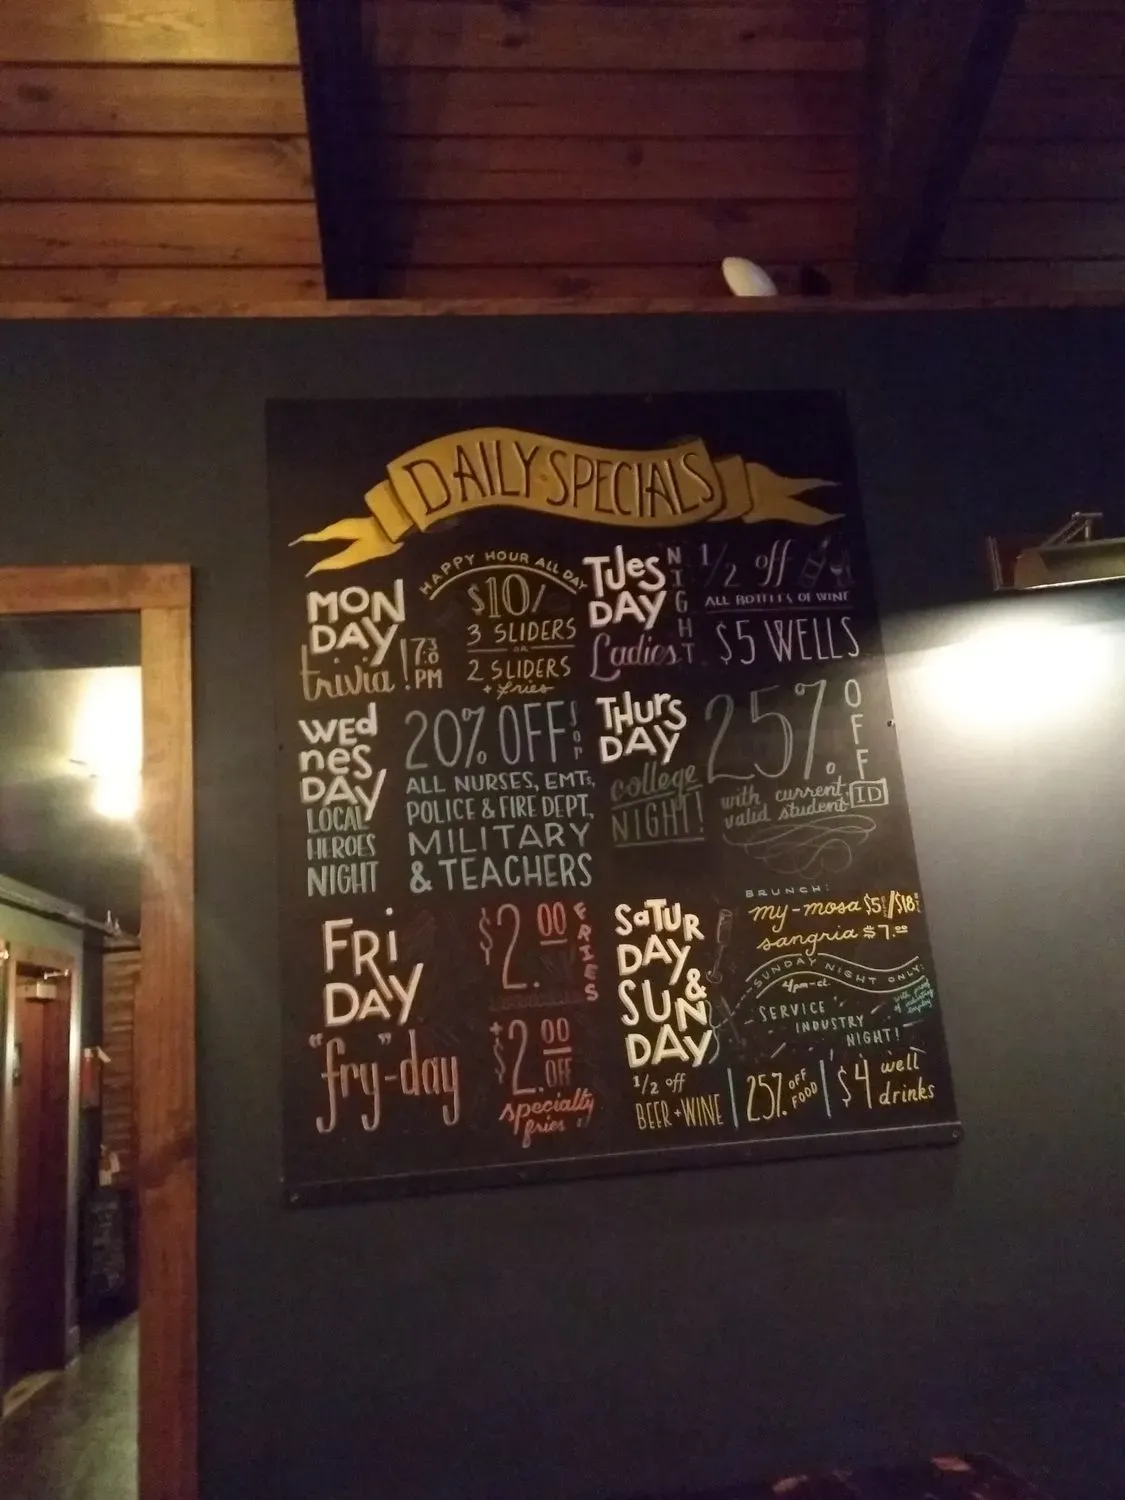 DAILY SPECIALS
MONDAY
trivia! 7:30 PM
HAPPY HOUR ALL DAY
$10/
3 SLIDERS
OR
2 SLIDERS
+ fries
TUESDAY
Ladies NIGHT
1/2 off
ALL BOTTLES OF WINE
$5 WELLS
WEDNESDAY
LOCAL
HEROES
NIGHT
20% OFF for
ALL NURSES, EMTs,
POLICE & FIRE DEPT,
MILITARY
& TEACHERS
THURSDAY
college
NIGHT!
25% OFF
with current,
valid student ID
FRIDAY
"fry"-day
$2.00 FRIES
+ $2.00 OFF
specialty
fries!!
SATURDAY &
SUNDAY
BRUNCH:
my-mosa $5/$18
sangria $7.00
SUNDAY NIGHT ONLY:
4pm-cl.
SERVICE
INDUSTRY
NIGHT!
with proof of industry
1/2 off
BEER + WINE
25% OFF FOOD
$4 well
drinks